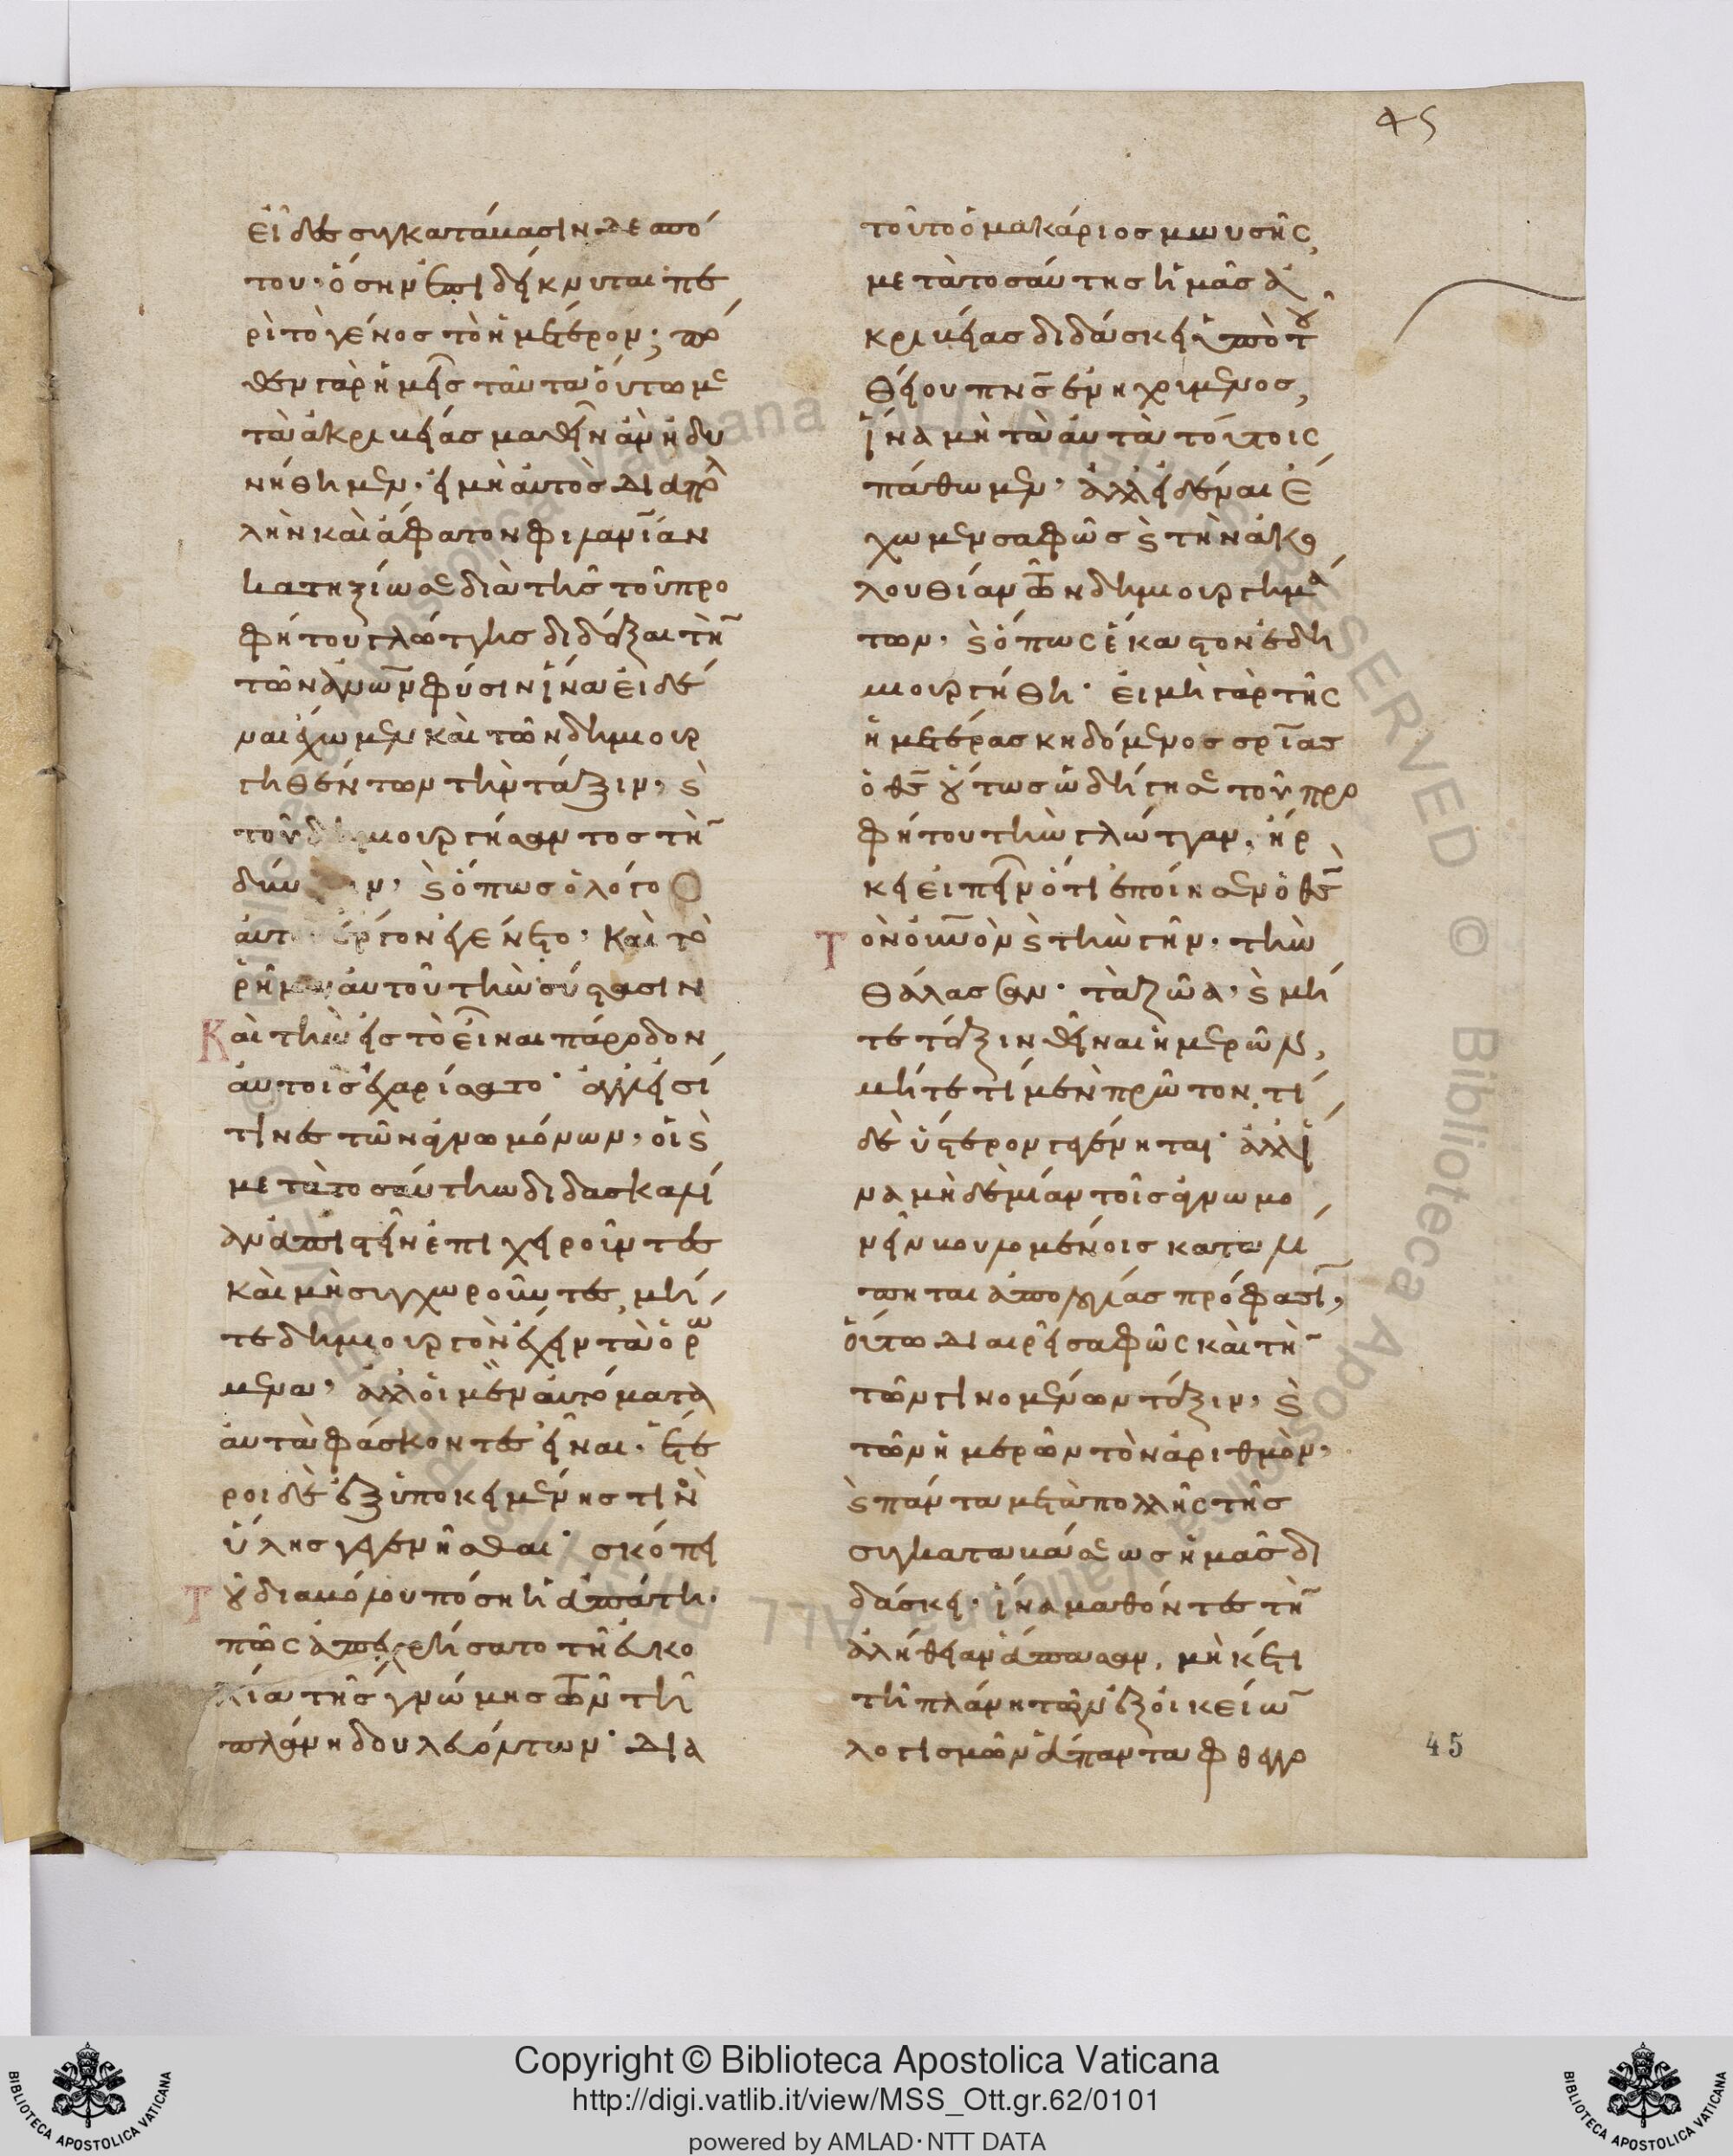 45
εἶδες συγκατάβασιν δεσπό
του· ὅσην ἐπιδείκνυται πε
ρὶ τὸ γένος τὸ ἡμέτερον; πό
θεν γὰρ ἡμεῖς ταῦτα οὕτω με
τὰ ἀκριβείας μαθεῖν ἂν ἠδυ
νήθημεν· εἰ μὴ αὐτὸς διὰ πολ
λὴν καὶ ἄφατον φιλανίαν
κατηξίωσε διὰ τῆς τοῦ προ
φήτου γλώττης διδάξαι τὴν
τῶν ἀνων φύσιν ἵνα εἰδέ
ναι ἔχωμεν καὶ τῶν δημιουρ
γηθέντων τὴν τάξιν, ϛ
τοῦ δημιουργήσαντος τὴν
ϛ ὅπως ὁ λόγο
ἔργον ἐγένετο· καὶ τὸ
ῥῆμα αὐτοῦ τὴν σύστασιν
Καὶ τὴν εἰς τὸ εἶναι πάροδον
αὐτοῖς ἐχαρίσατο· ἀλλ εἰσί
τινες τῶν ἀγνωμόνων, οἳ ϛ
μετὰ τοσαύτην διδασκαλί
αν ἀπιστεῖν ἐπιχειροῦντες
καὶ μὴ συγχωροῦντες, μή
τε δημιουργὸν ἔχειν τὰ ὁρω
μενα, ἀλλ οἱ μὲν αὐτόματα
αὐτὰ φάσκοντες εἶναι· ἕτε
ροι δὲ ἐξ ὑποκειμένης τινὸ
ὕλης γεγενῆσθαι· σκόπει
Τοῦ διαβόλου πόση ἡ ἀπάτη·
πῶς ἀπεχρήσατο τῆ εὐκο
λία τῆς γνώμης τῶν τῆ
πλάνη δουλευόντων· διὰ
τοῦτο ὁ μακάριος μωυσῆς,
μετὰ τοσαύτης ἡμᾶς ἀ
κριβείας διδάσκει ὑπὸ τοῦ
θείου πνς ἐνηχούμενος,
ἵνα μὴ τὰ αὐτὰ τούτοις
πάθωμεν· ἀλλ εἰδέναι ἔ
χωμεν σαφῶς ϛ τὴν ἀκο
λουθίαν τῶν δημιουργημά
των· ϛ ὅπως ἕκαστον ἐδη
μιουργήθη· εἰ μὴ γὰρ τῆς
ἡμετέρας κηδόμενος σρίας
ὁ θς οὕτως ὡδήγησε τοῦ προ
φήτου τὴν γλώτταν, ἤρ
κει εἰπεῖν ὅτι ἐποίησεν ὁ θς
Τὸν οὐνὸν ϛ τὴν γῆν· τὴν
θάλασσαν· τὰ ζῶα, ϛ μή
τε τάξιν θεῖναι ἡμερῶν,
μήτε τί μὲν πρῶτον, τί
δὲ ὕστερον γεγένηται· ἀλλ ἵ
να μηδεμίαν τοῖς ἀγνωμο
νεῖν βουλομένοις καταλί
πηται ἀπολογίας πρόφασιν,
οὕτω διαιρεῖ σαφῶς καὶ τὴν
τῶν γινομένων τάξιν, ϛ
τῶν ἡμερῶν τὸν ἀριθμὸν,
ϛ πάντα μετὰ πολλῆς τῆς
συγκαταβάσεως ἡμᾶς δι
δάσκει· ἵνα μαθόντες τὴν
ἀλήθειαν ἅπασαν, μηκέτι
τῆ πλάνη τῶν ἐξ οἰκείων
λογισμῶν ἅπαντα φθεγγο
45
Copyright © Biblioteca Apostolica Vaticana
http://digi.vatlib.it/view/MSS_Ott.gr.62/0101
powered by AMLAD·NTT DATA
BIBLIOTECA APOSTOLICA VATICANA
BIBLIOTECA APOSTOLICA VATICANA